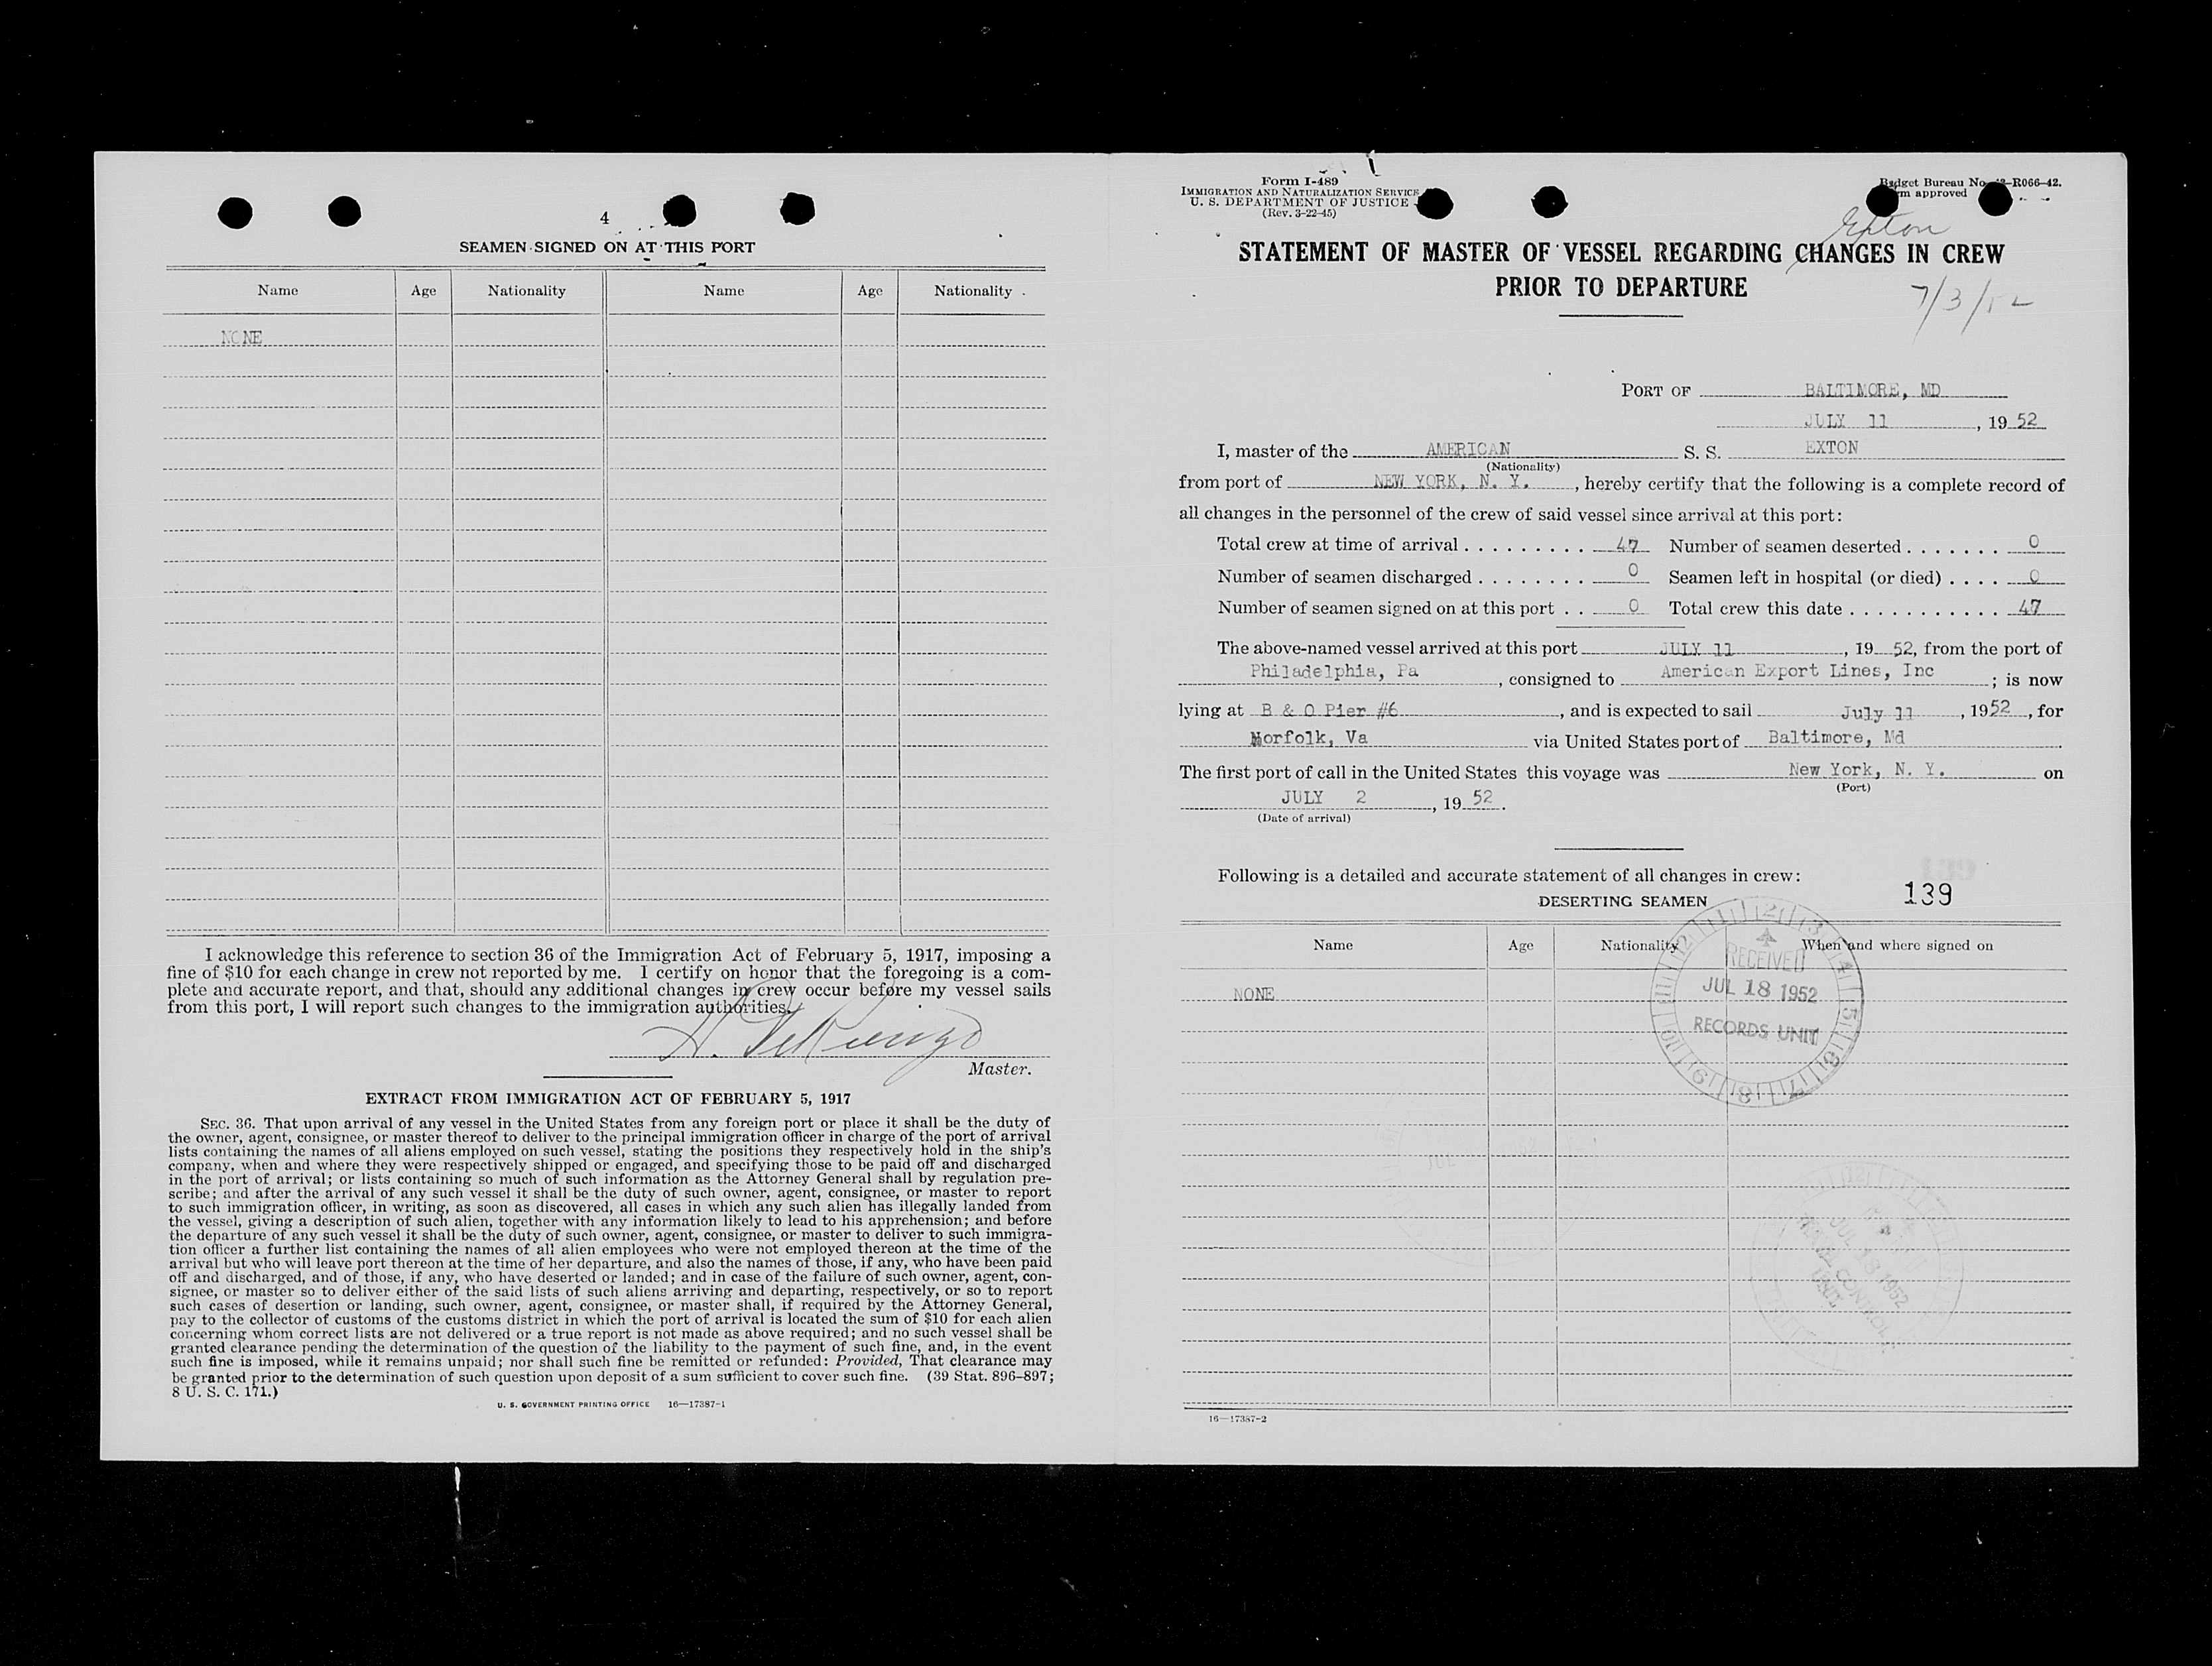 4
SEAMEN SIGNED ON AT THIS PORT
Name Age Nationality Name Age Nationality
NONE
I acknowledge this reference to section 36 of the Immigration Act of February 5, 1917, imposing a
fine of $10 for each change in crew not reported by me. I certify on honor that the foregoing is a com-
plete and accurate report, and that, should any additional changes in crew occur before my vessel sails
from this port, I will report such changes to the immigration authorities.
Master.
EXTRACT FROM IMMIGRATION ACT OF FEBRUARY 5, 1917
SEC. 36. That upon arrival of any vessel in the United States from any foreign port or place it shall be the duty of
the owner, agent, consignee, or master thereof to deliver to the principal immigration officer in charge of the port of arrival
lists containing the names of all aliens employed on such vessel, stating the positions they respectively hold in the ship's
company, when and where they were respectively shipped or engaged, and specifying those to be paid off and discharged
in the port of arrival; or lists containing so much of such information as the Attorney General shall by regulation pre-
scribe; and after the arrival of any such vessel it shall be the duty of such owner, agent, consignee, or master to report
to such immigration officer, in writing, as soon as discovered, all cases in which any such alien has illegally landed from
the vessel, giving a description of such alien, together with any information likely to lead to his apprehension; and before
the departure of any such vessel it shall be the duty of such owner, agent, consignee, or master to deliver to such immigra-
tion officer a further list containing the names of all alien employees who were not employed thereon at the time of the
arrival but who will leave port thereon at the time of her departure, and also the names of those, if any, who have been paid
off and discharged, and of those, if any, who have deserted or landed; and in case of the failure of such owner, agent, con-
signee, or master so to deliver either of the said lists of such aliens arriving and departing, respectively, or so to report
such cases of desertion or landing, such owner, agent, consignee, or master shall, if required by the Attorney General,
pay to the collector of customs of the customs district in which the port of arrival is located the sum of $10 for each alien
concerning whom correct lists are not delivered or a true report is not made as above required; and no such vessel shall be
granted clearance pending the determination of the question of the liability to the payment of such fine, and, in the event
such fine is imposed, while it remains unpaid; nor shall such fine be remitted or refunded: Provided, That clearance may
be granted prior to the determination of such question upon deposit of a sum sufficient to cover such fine. (39 Stat. 896-897;
8 U. S. C. 171.)
U. S. GOVERNMENT PRINTING OFFICE 16—17387-1
Form I-489
IMMIGRATION AND NATURALIZATION SERVICE
U. S. DEPARTMENT OF JUSTICE
(Rev. 3-22-45)
Budget Bureau No. -R066-42.
approved
Exton
STATEMENT OF MASTER OF VESSEL REGARDING CHANGES IN CREW
PRIOR TO DEPARTURE
7/3/52
PORT OF BALTIMORE, MD
JULY 11, 19 52
I, master of the AMERICAN S. S. EXTON
(Nationality)
from port of NEW YORK, N. Y., hereby certify that the following is a complete record of
all changes in the personnel of the crew of said vessel since arrival at this port:
Total crew at time of arrival 47 Number of seamen deserted 0
Number of seamen discharged 0 Seamen left in hospital (or died) 0
Number of seamen signed on at this port 0 Total crew this date 47
The above-named vessel arrived at this port JULY 11, 19 52, from the port of
Philadelphia, Pa, consigned to American Export Lines, Inc; is now
lying at B & O Pier #6, and is expected to sail July 11, 1952, for
Norfolk, Va via United States port of Baltimore, Md.
The first port of call in the United States this voyage was New York, N. Y. on
(Port)
JULY 2, 19 52.
(Date of arrival)
Following is a detailed and accurate statement of all changes in crew:
139
DESERTING SEAMEN
Name Age Nationality When and where signed on
NONE
RECEIVED
JUL 18 1952
RECORDS UNIT
16—17387-2